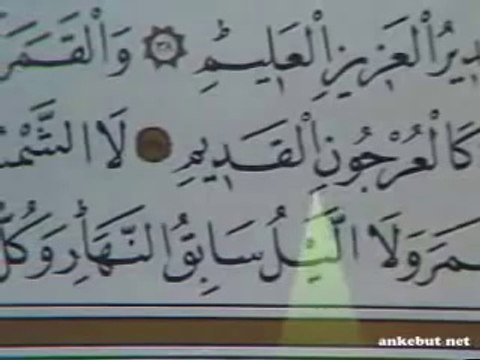 ٱلْعَزِيزِ ٱلْعَلِيمِ ٣٨ وَٱلْقَمَرَ
كَٱلْعُرْجُونِ ٱلْقَدِيمِ لَا ٱلشَّمْسُ
وَلَا ٱلَّيْلُ سَابِقُ ٱلنَّهَارِ وَكُلٌّ
ankebut.net